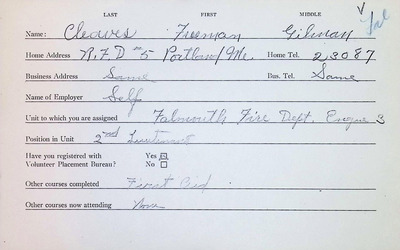 LAST FIRST MIDDLE
Name: Cleaves Freeman Gilman
Home Address R.F.D #5 Portland, Me. Home Tel. 23087
Business Address Same Bus. Tel. Same
Name of Employer Self
Unit to which you are assigned Falmouth Fire Dept. Engine 3
Position in Unit 2nd Lieutenant
Have you registered with Yes
Volunteer Placement Bureau? No
Other courses completed First Aid
Other courses now attending None